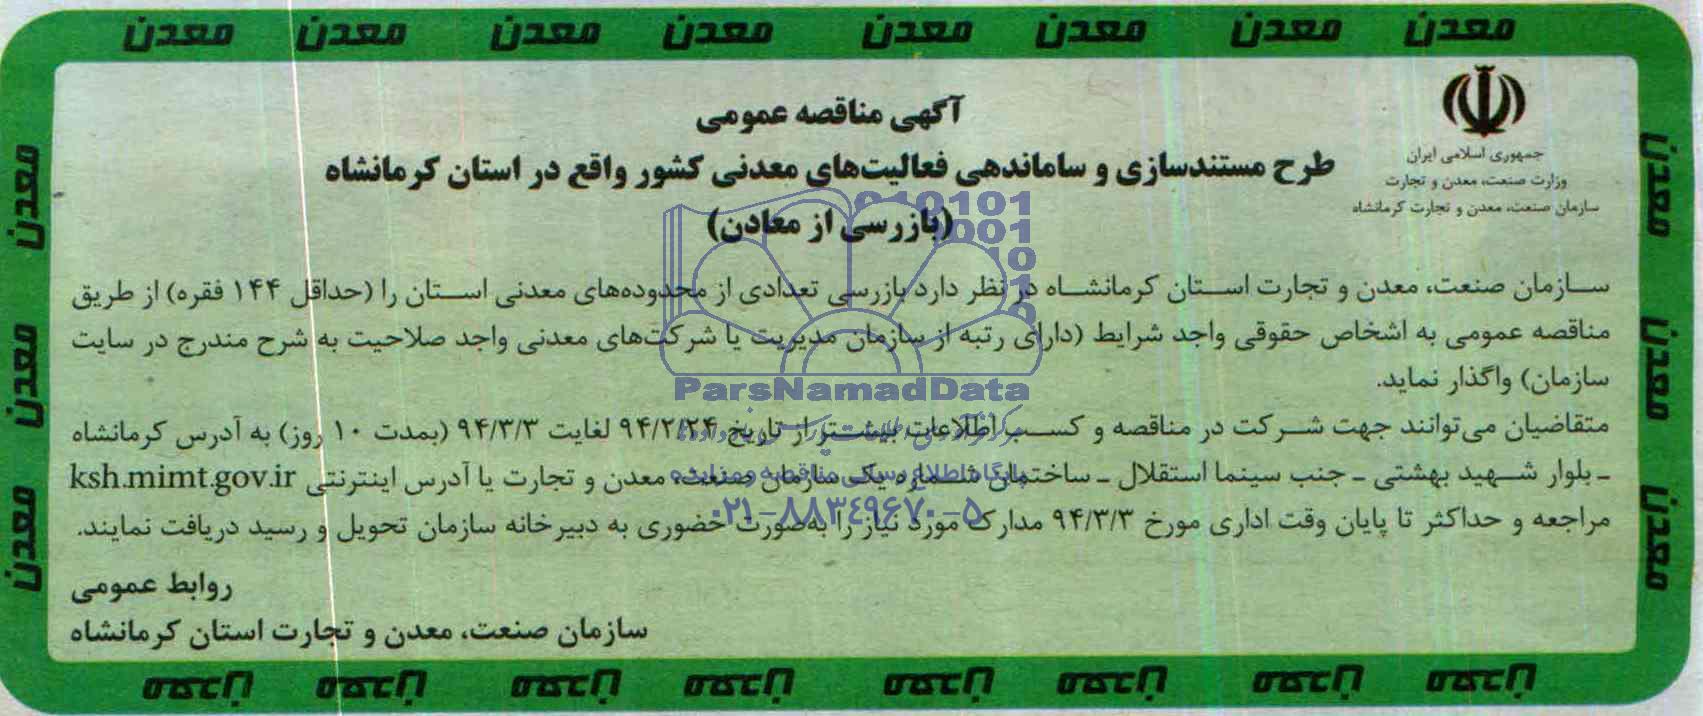 معدن معدن معدن معدن معدن معدن معدن معدن
جمهوری اسلامی ایران
وزارت صنعت، معدن و تجارت
سازمان صنعت، معدن و تجارت کرمانشاه
آگهی مناقصه عمومی
طرح مستندسازی و ساماندهی فعالیت‌های معدنی کشور واقع در استان کرمانشاه
(بازرسی از معادن)
سازمان صنعت، معدن و تجارت استان کرمانشاه در نظر دارد بازرسی تعدادی از محدوده‌های معدنی استان را (حداقل ۱۴۴ فقره) از طریق
مناقصه عمومی به اشخاص حقوقی واجد شرایط (دارای رتبه از سازمان مدیریت یا شرکت‌های معدنی واجد صلاحیت به شرح مندرج در سایت
سازمان) واگذار نماید.
متقاضیان می‌توانند جهت شرکت در مناقصه و کسب اطلاعات بیشتر از تاریخ ۹۴/۲/۲۴ لغایت ۹۴/۳/۳ (بمدت ۱۰ روز) به آدرس کرمانشاه
ـ بلوار شهید بهشتی ـ جنب سینما استقلال ـ ساختمان شماره یک سازمان صنعت، معدن و تجارت یا آدرس اینترنتی ksh.mimt.gov.ir
مراجعه و حداکثر تا پایان وقت اداری مورخ ۹۴/۳/۳ مدارک مورد نیاز را به‌صورت حضوری به دبیرخانه سازمان تحویل و رسید دریافت نمایند.
روابط عمومی
سازمان صنعت، معدن و تجارت استان کرمانشاه
ParsNamadData
پایگاه اطلاع رسانی مناقصه و مزایده
۰۲۱-۸۸۳۴۹۶۷۰-۵
معدن معدن معدن
معدن معدن معدن
معدن معدن معدن معدن معدن معدن معدن معدن